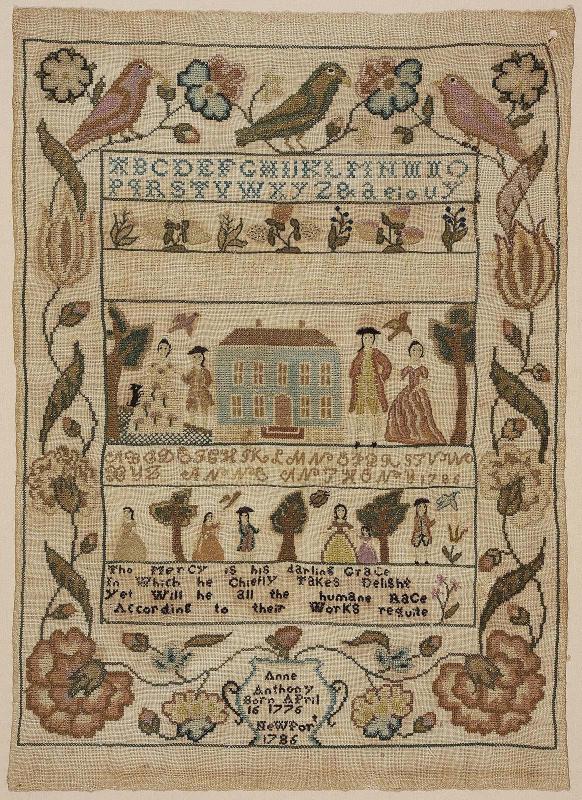 ABCDEFGHIJKLMNOPQ
PQRSTVWXYZ&aeiouy
ABCDEFGHIKLMNOPQRSTVW
XYZ ANNE ANTHONY 1786
Tho Mercy is his darling Grace
In Which he Chiefly Takes Delight
Yet Will he all the humane Race
According to their Works requite
Anne
Anthony
Born April
16 1776
Newport
1786